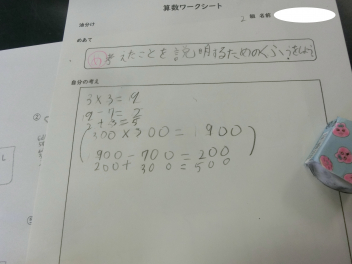 算数ワークシート
組 名前
めあて
考えたことを説明するためのくふうをしよう
自分の考え
3×3=9
9-7=2
2+3=5
300×300=900
900-700=200
200+300=500